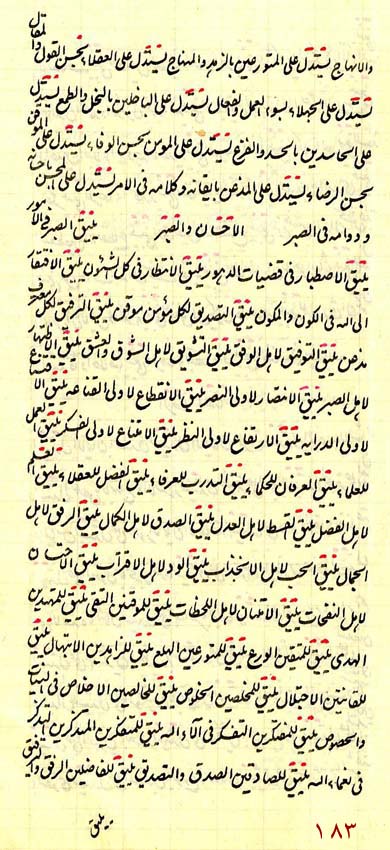 والابهاج يستدل على المتورعين بالزهد والمنهاج يستدل على العقلاء بحسن القول والمقال
يستدل على الجهلاء بسوء العمل والفعال يستدل على الباطلين بالبخل والطمع يستدل
على الحاسدين بالحسد والفزع يستدل على المؤمن بحسن الوفاء يستدل على الموقن
بحسن الرضاء يستدل على المذعن بايقانه وكلامه فى الامر يستدل على المحسن باحسانه
ودوامه فى الصبر الافتنان والصبر يليق الصبر فى الامور
يليق الاصطبار فى قضيات الدهور يليق الانتظار فى كل شئون يليق الافتقار
الى اله فى الكون والمكون يليق التصديق لكل مؤمن موقن يليق الترفق لكل معترف
مذعن يليق التوفيق لاهل الوفق يليق التشويق لاهل الشوق والعشق يليق الاظهار
لاهل الصبر يليق الانتصار لاولى النصر يليق الانقطاع لاولى القناعه يليق
لاولى الدرايه يليق الارتفاع لاولى النظر يليق الامتناع لاولى الفكر يليق العمل
للعلماء يليق العرفان للحكماء يليق التدرب للعرفاء يليق الفضل للعقلاء يليق العلم
لاهل الفضل يليق القسط لاهل العدل يليق الصدق لاهل الكمال يليق الرفق لاهل
الجمال يليق الحب لاهل الانجذاب يليق الود لاهل الاقتراب يليق
لاهل النفحات يليق الامتنان لاهل اللحظات يليق للموقنين التقى يليق للمهتدين
الهدى يليق للمتقين الورع يليق للمتورعين الهلع يليق للزاهدين الابتهال يليق
للقانتين الاجتلال يليق للمخلصين الخلوص يليق للخالصين الاخلاص فى النيات
والخصوص يليق للمفكرين التفكر فى آلاء اله يليق للمتفكرين المتذكرين التذكر
فى نعماء اله يليق للصادقين الصدق والتصديق يليق للفاضلين الرفق والترفيق
يليق
١٨٣